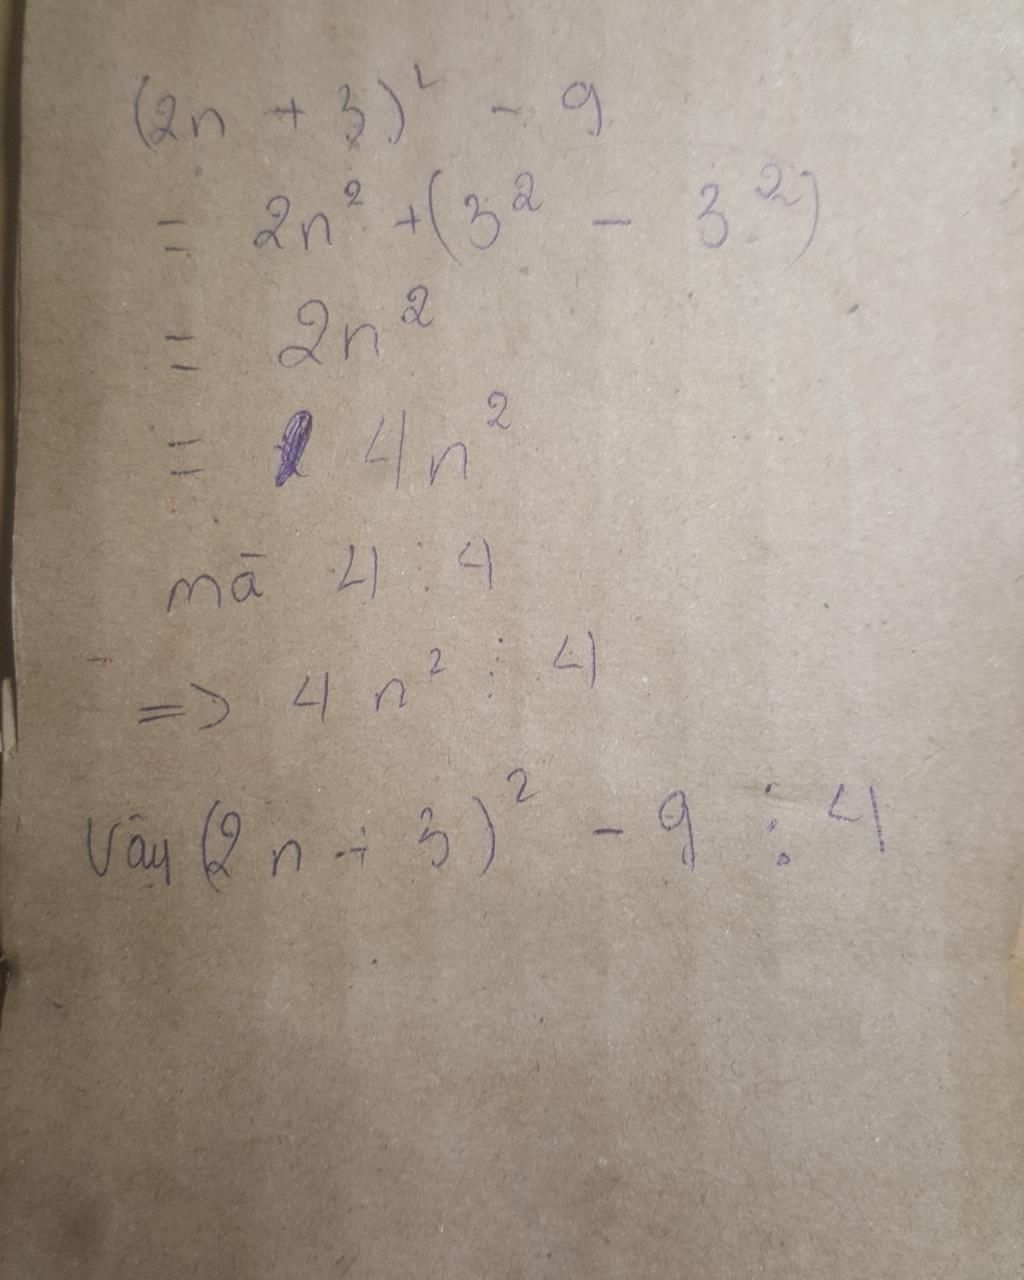 (2n + 3)² - 9
= 2n² + (3² - 3²)
= 2n²
= 4n²
mà 4 ⋮ 4
=> 4n² ⋮ 4
Vây (2n + 3)² - 9 ⋮ 4